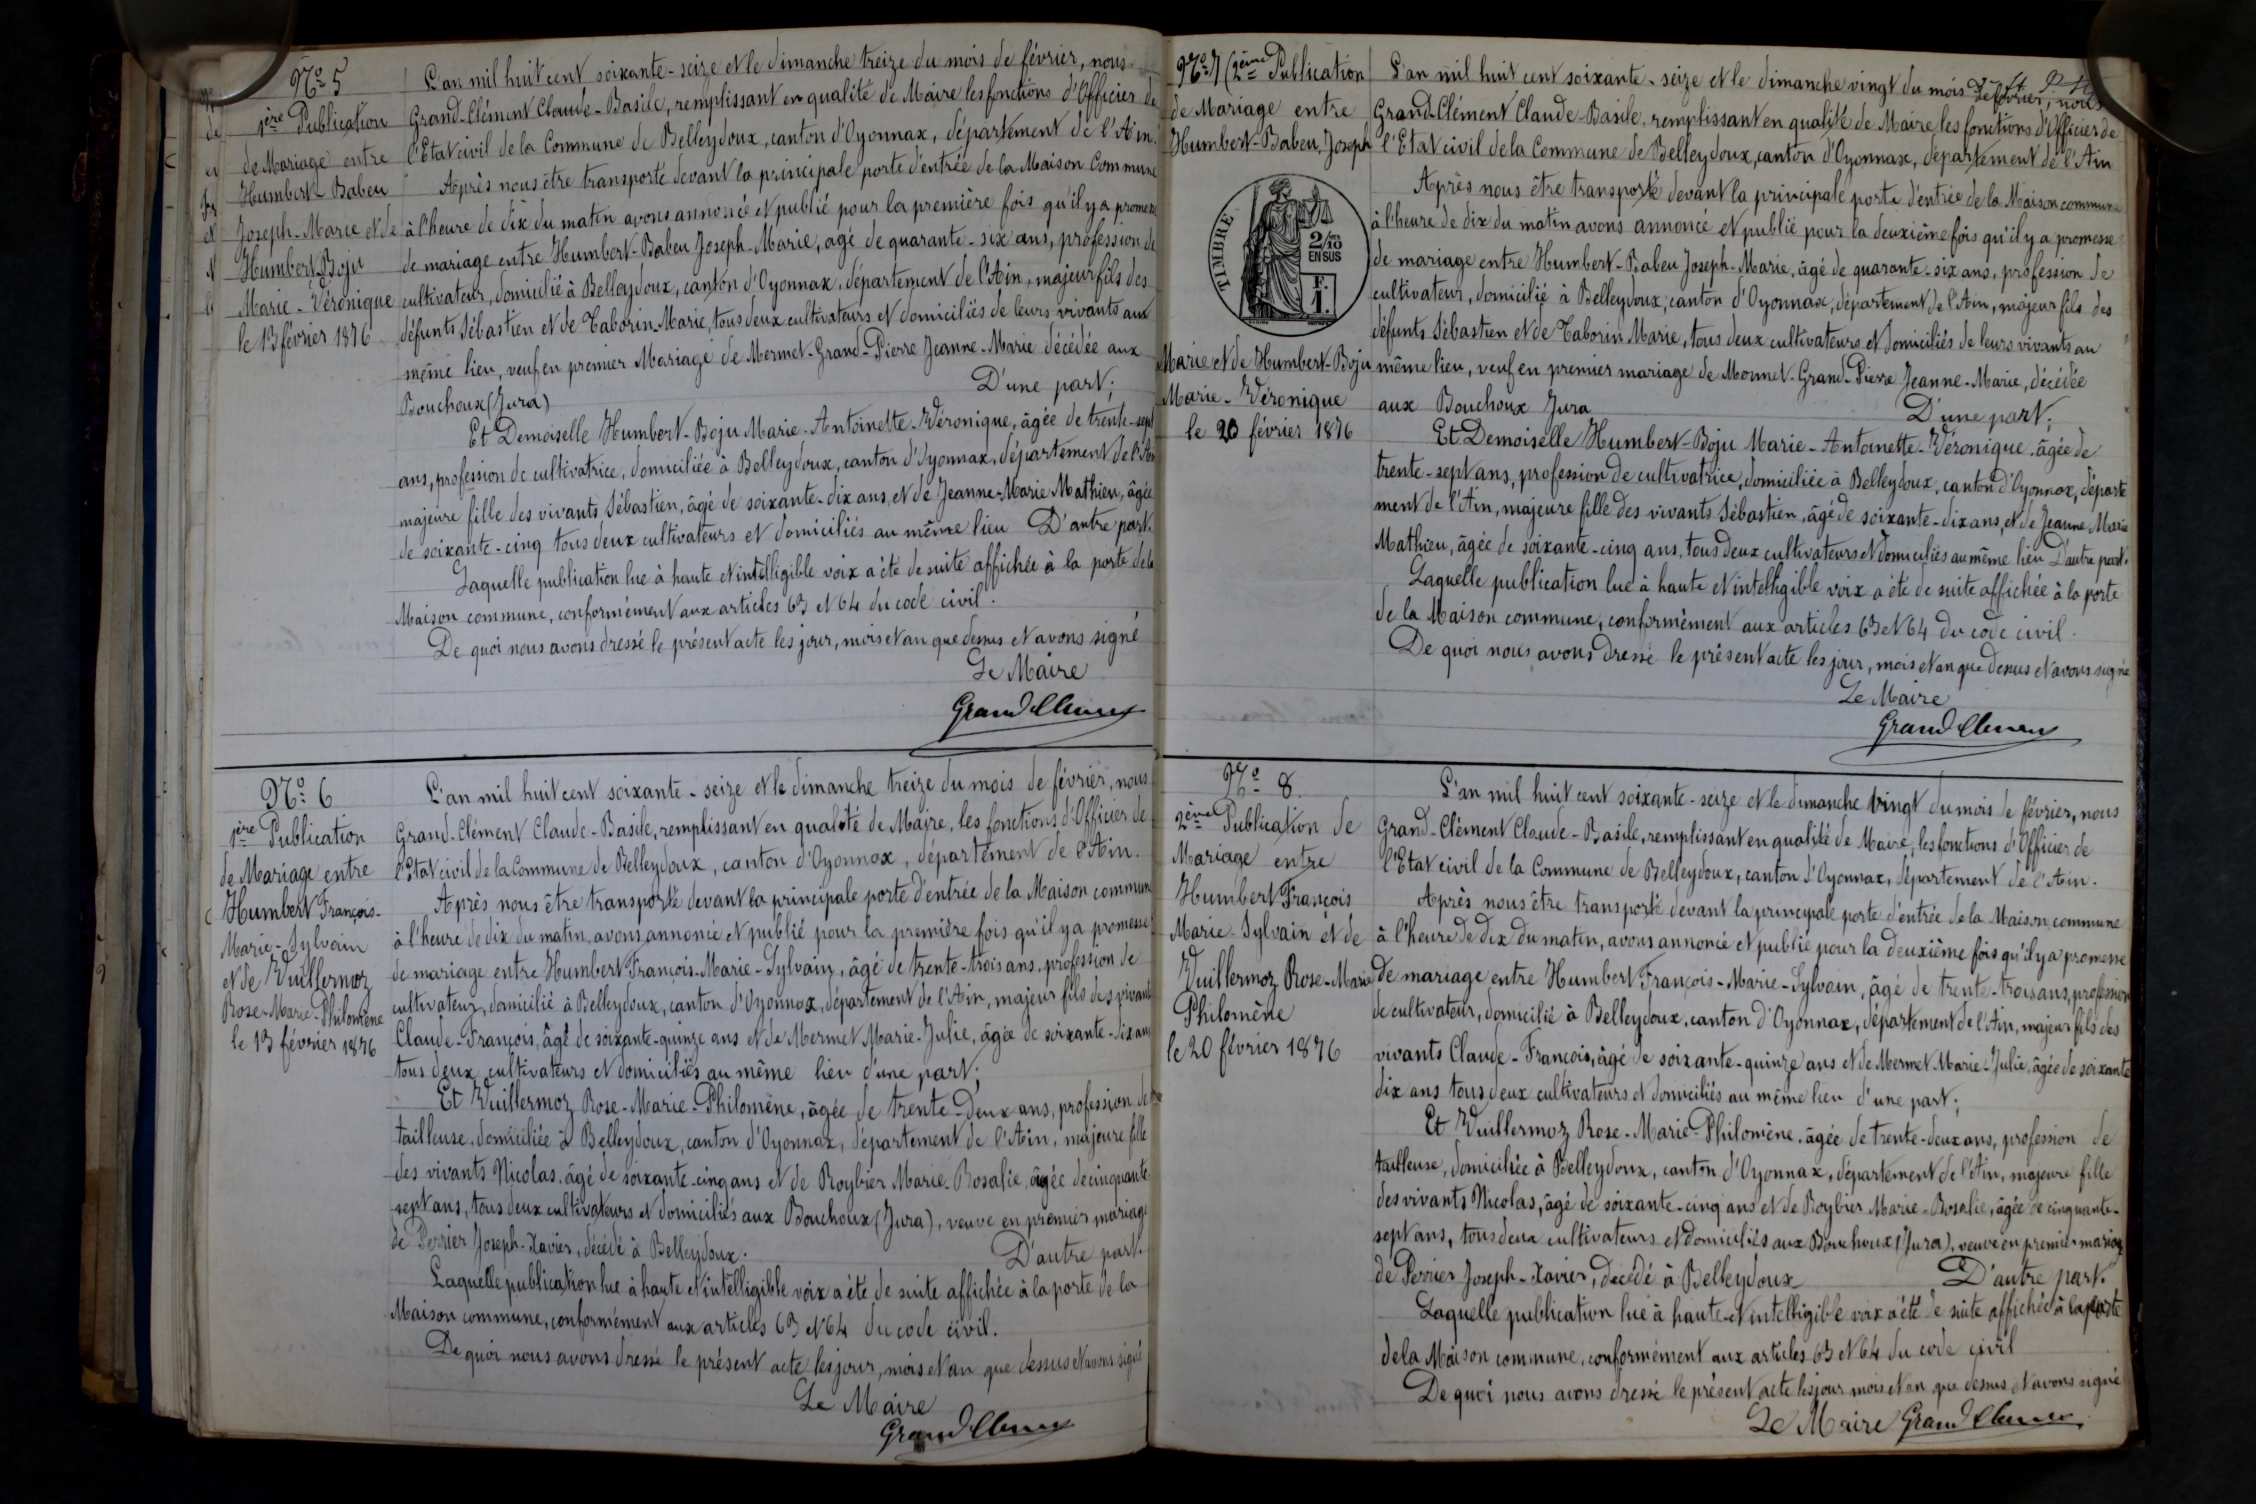 Nº 5
1ère Publication
de Mariage entre
Humbert-Babeu
Joseph-Marie et de
Humbert-Boju
Marie-Véronique
le 13 février 1876
L'an mil huit cent soixante-seize et le dimanche treize du mois de février, nous
Grand-Clément Claude-Basile, remplissant en qualité de Maire les fonctions d'Officier de
l'Etat civil de la Commune de Belleydoux, canton d'Oyonnax, département de l'Ain.
Après nous être transporté devant la principale porte d'entrée de la Maison Commune
à l'heure de dix du matin avons annoncé et publié pour la première fois qu'il y a promesse
de mariage entre Humbert-Babeu Joseph-Marie, âgé de quarante-six ans, profession de
cultivateur, domicilié à Belleydoux, canton d'Oyonnax, département de l'Ain, majeur fils des
défunts Sébastien et de Taborin Marie, tous deux cultivateurs et domiciliés de leurs vivants au
même lieu, veuf en premier Mariage de Mermet-Grand-Pierre Jeanne-Marie décédée aux
Bouchoux (Jura) D'une part;
Et Demoiselle Humbert-Boju Marie-Antoinette-Véronique, âgée de trente-sept
ans, profession de cultivatrice, domiciliée à Belleydoux, canton d'Oyonnax, département de l'Ain
majeure fille des vivants Sébastien, âgé de soixante-dix ans, et de Jeanne-Marie Mathieu, âgée
de soixante-cinq tous deux cultivateurs et domiciliés au même lieu D'autre part.
Laquelle publication lue à haute et intelligible voix a été de suite affichée à la porte de la
Maison commune, conformément aux articles 63 et 64 du code civil.
De quoi nous avons dressé le présent acte les jour, mois et an que dessus et avons signé
Le Maire
Grand Clément
Nº 6
1ère Publication
de Mariage entre
Humbert François-
Marie-Sylvain
et de Vuillermoz
Rose-Marie-Philomène
le 13 février 1876
L'an mil huit cent soixante-seize et le dimanche treize du mois de février, nous
Grand-Clément Claude-Basile, remplissant en qualité de Maire, les fonctions d'Officier de
l'Etat civil de la Commune de Belleydoux, canton d'Oyonnax, département de l'Ain.
Après nous être transporté devant la principale porte d'entrée de la Maison commune
à l'heure de dix du matin, avons annoncé et publié pour la première fois qu'il y a promesse
de mariage entre Humbert François-Marie-Sylvain, âgé de trente-trois ans, profession de
cultivateur, domicilié à Belleydoux, canton d'Oyonnax, département de l'Ain, majeur fils des vivants
Claude-François, âgé de soixante-quinze ans et de Mermet Marie-Julie, âgée de soixante-dix ans
tous deux cultivateurs et domiciliés au même lieu d'une part;
Et Vuillermoz Rose-Marie-Philomène, âgée de trente-deux ans, profession de
tailleuse, domiciliée à Belleydoux, canton d'Oyonnax, département de l'Ain, majeure fille
des vivants Nicolas, âgé de soixante-cinq ans et de Roybier Marie-Rosalie, âgée de cinquante-
sept ans, tous deux cultivateurs et domiciliés aux Bouchoux (Jura), veuve en premier mariage
de Perrier Joseph-Xavier, décédé à Belleydoux. D'autre part.
Laquelle publication lue à haute et intelligible voix a été de suite affichée à la porte de la
Maison commune, conformément aux articles 63 et 64 du code civil.
De quoi nous avons dressé le présent acte les jour, mois et an que dessus et avons signé
Le Maire
Grand Clément
Nº 7 (2ème Publication
de Mariage entre
Humbert-Babeu, Joseph
TIMBRE
2/10
EN SUS
F.
1.
Marie et de Humbert-Boju
Marie-Véronique
le 20 février 1876
L'an mil huit cent soixante-seize et le dimanche vingt du mois de février, nous
Grand-Clément Claude-Basile, remplissant en qualité de Maire les fonctions d'Officier de
l'Etat civil de la Commune de Belleydoux, canton d'Oyonnax, département de l'Ain
Après nous être transporté devant la principale porte d'entrée de la Maison commune
à l'heure de dix du matin avons annoncé et publié pour la deuxième fois qu'il y a promesse
de mariage entre Humbert-Babeu Joseph-Marie, âgé de quarante-six ans, profession de
cultivateur, domicilié à Belleydoux, canton d'Oyonnax, département de l'Ain, majeur fils des
défunts Sébastien et de Taborin Marie, tous deux cultivateurs et domiciliés de leurs vivants au
même lieu, veuf en premier mariage de Mermet-Grand-Pierre Jeanne-Marie, décédée
aux Bouchoux Jura D'une part;
Et Demoiselle Humbert-Boju Marie-Antoinette-Véronique, âgée de
trente-sept ans, profession de cultivatrice, domiciliée à Belleydoux, canton d'Oyonnax, départe
ment de l'Ain, majeure fille des vivants Sébastien, âgé de soixante-dix ans, et de Jeanne Marie
Mathieu, âgée de soixante-cinq ans, tous deux cultivateurs et domiciliés au même lieu D'autre part.
Laquelle publication lue à haute et intelligible voix a été de suite affichée à la porte
de la Maison commune, conformément aux articles 63 et 64 du code civil.
De quoi nous avons dressé le présent acte les jour, mois et an que dessus et avons signé
Le Maire
Grand Clément
Nº 8
2ème Publication de
Mariage entre
Humbert François
Marie-Sylvain et de
Vuillermoz Rose-Marie
Philomène
le 20 février 1876
L'an mil huit cent soixante-seize et le dimanche vingt du mois de février, nous
Grand-Clément Claude-Basile, remplissant en qualité de Maire, les fonctions d'Officier de
l'Etat civil de la Commune de Belleydoux, canton d'Oyonnax, département de l'Ain.
Après nous être transporté devant la principale porte d'entrée de la Maison commune
à l'heure de dix du matin, avons annoncé et publié pour la deuxième fois qu'il y a promesse
de mariage entre Humbert François-Marie-Sylvain, âgé de trente-trois ans, profession
de cultivateur, domicilié à Belleydoux, canton d'Oyonnax, département de l'Ain, majeur fils des
vivants Claude-François, âgé de soixante-quinze ans et de Mermet Marie-Julie, âgée de soixante
dix ans tous deux cultivateurs et domiciliés au même lieu d'une part;
Et Vuillermoz Rose-Marie-Philomène, âgée de trente-deux ans, profession de
tailleuse, domiciliée à Belleydoux, canton d'Oyonnax, département de l'Ain, majeure fille
des vivants Nicolas, âgé de soixante-cinq ans et de Roybier Marie-Rosalie, âgée de cinquante-
sept ans, tous deux cultivateurs et domiciliés aux Bouchoux (Jura), veuve en premier mariage
de Perrier Joseph-Xavier, décédé à Belleydoux D'autre part.
Laquelle publication lue à haute et intelligible voix a été de suite affichée à la porte
de la Maison commune, conformément aux articles 63 et 64 du code civil
De quoi nous avons dressé le présent acte les jour mois et an que dessus et avons signé
Le Maire Grand Clément